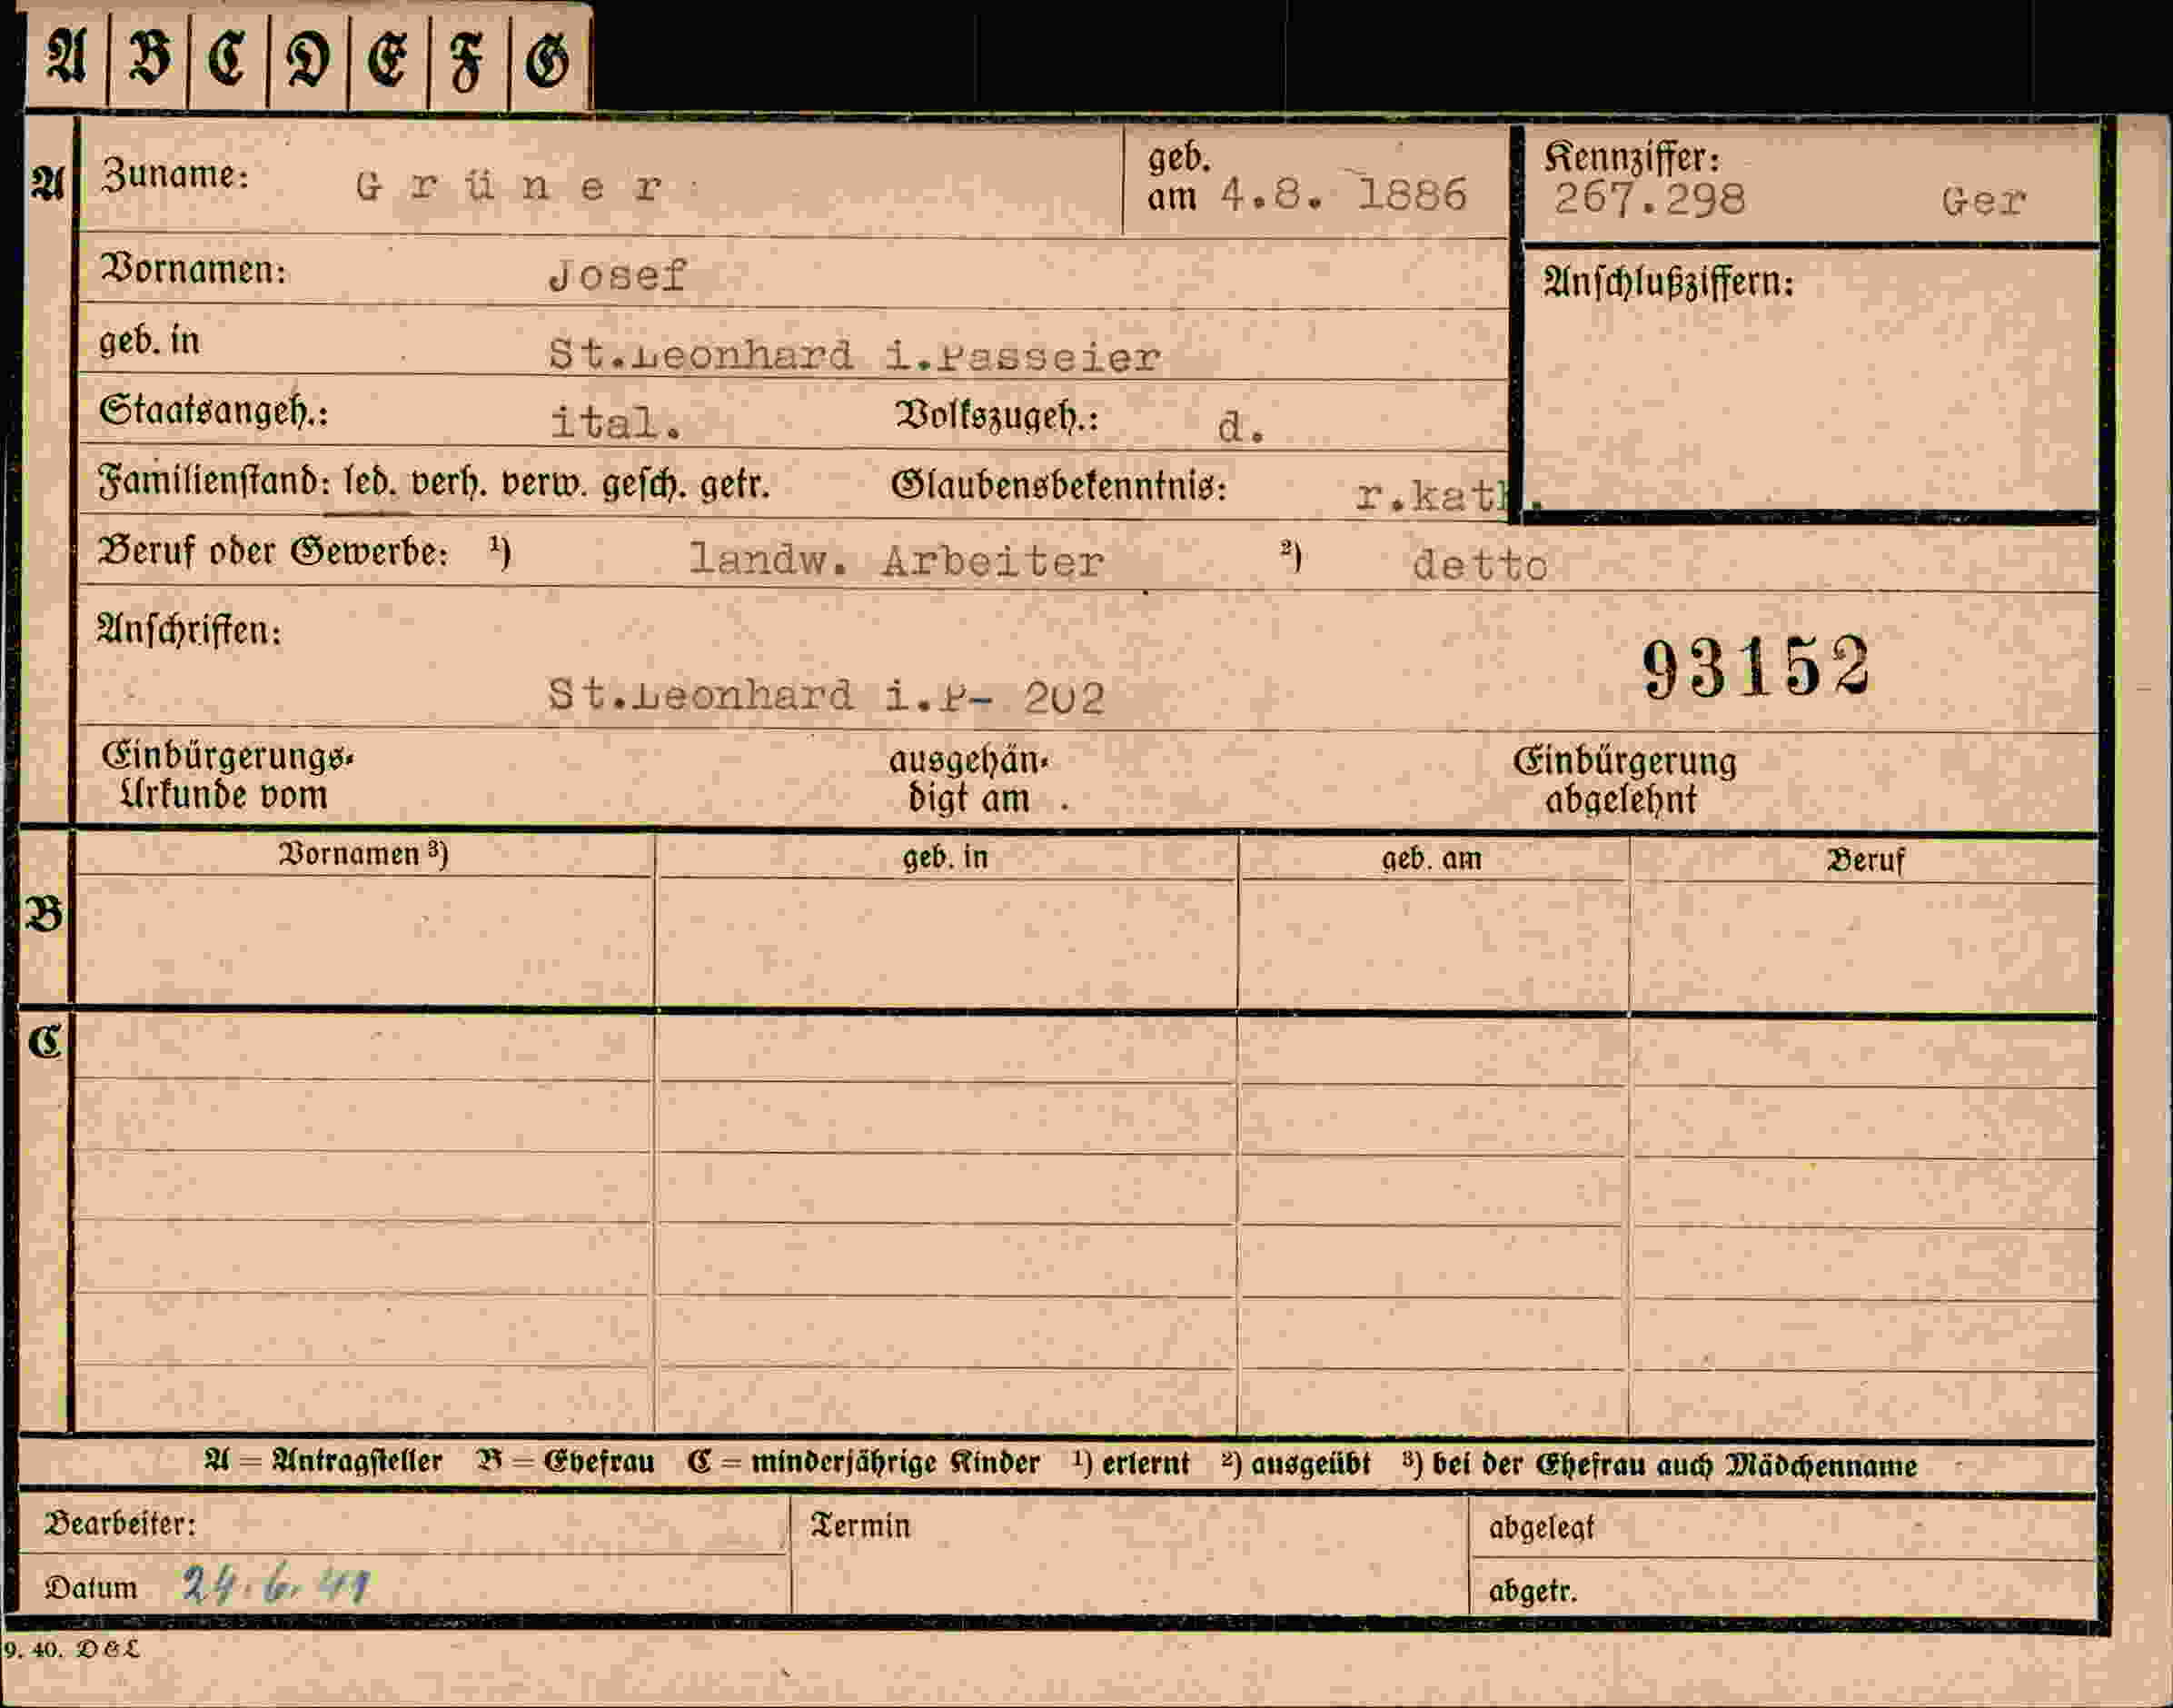 A B C D E F G
A Zuname: Grüner geb. am 4.8. 1886 Kennziffer: 267.298 Ger
Vornamen: Josef Anschlußziffern:
geb. in St.Leonhard i.Passeier
Staatsangeh.: ital. Volkszugeh.: d.
Familienstand: led. verh. verw. gesch. getr. Glaubensbekenntnis: r.kath.
Beruf oder Gewerbe: ¹) landw. Arbeiter ²) detto
Anschriften:
93152
St.Leonhard i.P- 202
Einbürgerungs-Urkunde vom ausgehän-digt am . Einbürgerung abgelehnt
Vornamen ³) geb. in geb. am Beruf
B
C
A = Antragsteller B = Ehefrau C = minderjährige Kinder ¹) erlernt ²) ausgeübt ³) bei der Ehefrau auch Mädchenname
Bearbeiter: Termin abgelegt
Datum 24.6.41 abgetr.
9. 40. D&L